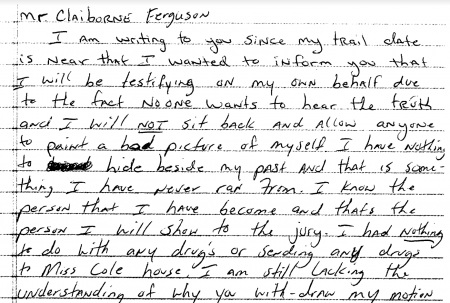 Mr Claiborne Ferguson
I am writing to you since my trail date
is near that I wanted to inform you that
I will be testifying on my own behalf due
to the fact no one wants to hear the truth
and I will NOT sit back and allow anyone
to paint a bad picture of myself I have nothing
to hide beside my past and that is some-
thing I have never ran from. I know the
person that I have become and thats the
person I will show to the jury. I had nothing
to do with any drug's or sending any drugs
to Miss Cole house. I am still lacking the
understanding of why you with-draw my motion